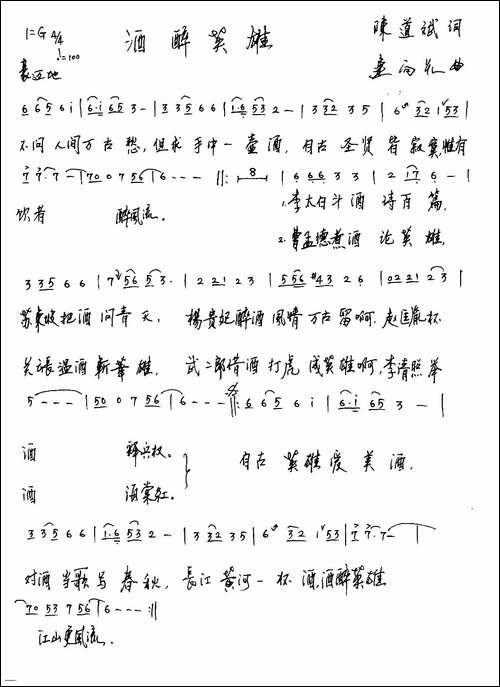 酒醉英雄
1=G 4/4
♩=100
豪迈地
陳道斌 词
曲
6 6 6 5 6 i | 6·i 6 5 3 - | 3 3 5 6 6 | 1·6 5 3 2 - | 3 3 2 3 5 | 6 3 2 1 5 3 |
不问人间万古愁,但求手中一壶酒,自古圣贤皆寂寞,惟有
7 7·7 | 7 0 0 7 5 6 | 6 - - - ||: 8 | 6 6 6 3 3 | 2 1 7 6 - |
饮者 醉風流。 1.李太白斗酒诗百篇,
2.曹孟德煮酒论英雄,
3 3 5 6 6 | 7 5 6 5 3· | 2 2 1 2 3 | 5 5 6 #4 3 2 6 | 0 2 2 1 2 3 |
苏東坡把酒问青天, 楊贵妃醉酒風情万古留啊,赵匡胤杯
关云長温酒斬華雄, 武二郎借酒打虎成英雄啊,李清照举
5 - - - | 5 0 0 7 5 6 | 6 - - - :||: 6 6 6 5 6 i | 6·i 6 5 3 - |
酒 释兵权。 自古英雄爱美酒,
酒 海棠红。
3 3 5 6 6 | 1·6 5 3 2 - | 3 3 2 3 5 | 6 3 2 1 5 3 | 7 7·7 - |
对酒当歌与春秋,長江黄河一杯酒,酒醉英雄
7 0 5 3 7 5 6 | 6 - - - :||
江山更風流。